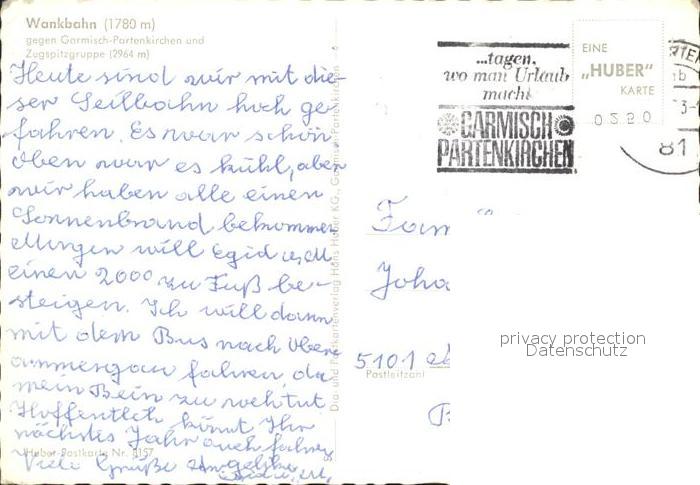 Wankbahn (1780 m)
gegen Garmisch-Partenkirchen und
Zugspitzgruppe (2964 m)
Heute sind wir mit die-
ser Seilbahn hoch ge-
fahren. Es war schön
Oben war es kühl, aber
wir haben alle einen
Sonnenbrand bekommen
Morgen will Egid
einen 2000 zu Fuß be-
steigen. Ich will dann
mit dem Bus nach Ober-
ammergau fahren, da
mein Bein zu weh tut
Hoffentlich könnt Ihr
nächstes Jahr auch fahren
Viele Grüße
Huber-Postkarte Nr. 8157
Dia- und Postkartenverlag Hans Huber KG., Garmisch-Partenkirchen
...tagen,
wo man Urlaub
macht
GARMISCH
PARTENKIRCHEN
EINE
„HUBER"
KARTE
81
Fam
Joha
5101
Postleitzahl
privacy protection
Datenschutz